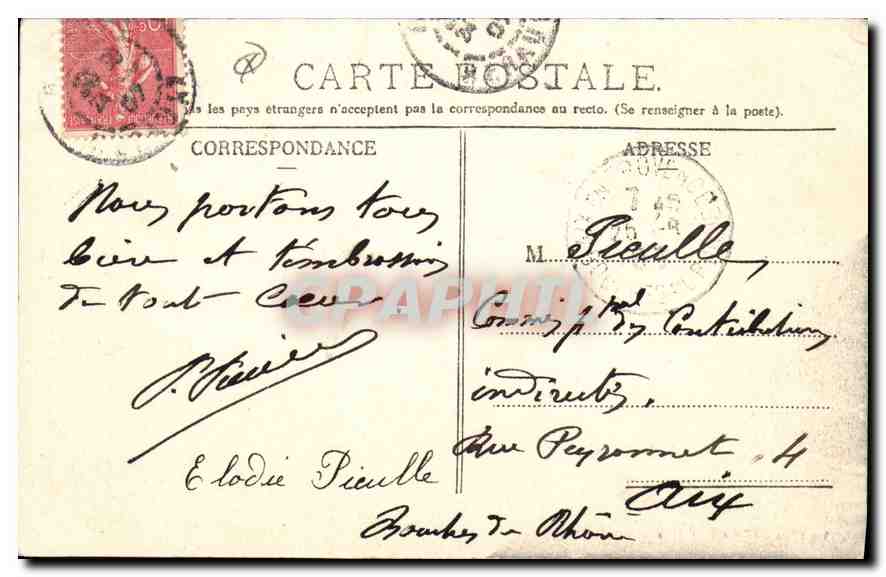 CARTE POSTALE
les pays étrangers n'acceptent pas la correspondance au recto. (Se renseigner à la poste).
CORRESPONDANCE
ADRESSE
Nous portons tous
bien et t'embrassons
de tout Coeur
Elodie Pieulle
M. Pieulle,
Commis pal des Contributions
indirectes,
Rue Peyronnet 4
Aix
Bouches du Rhône
CPAPHIL